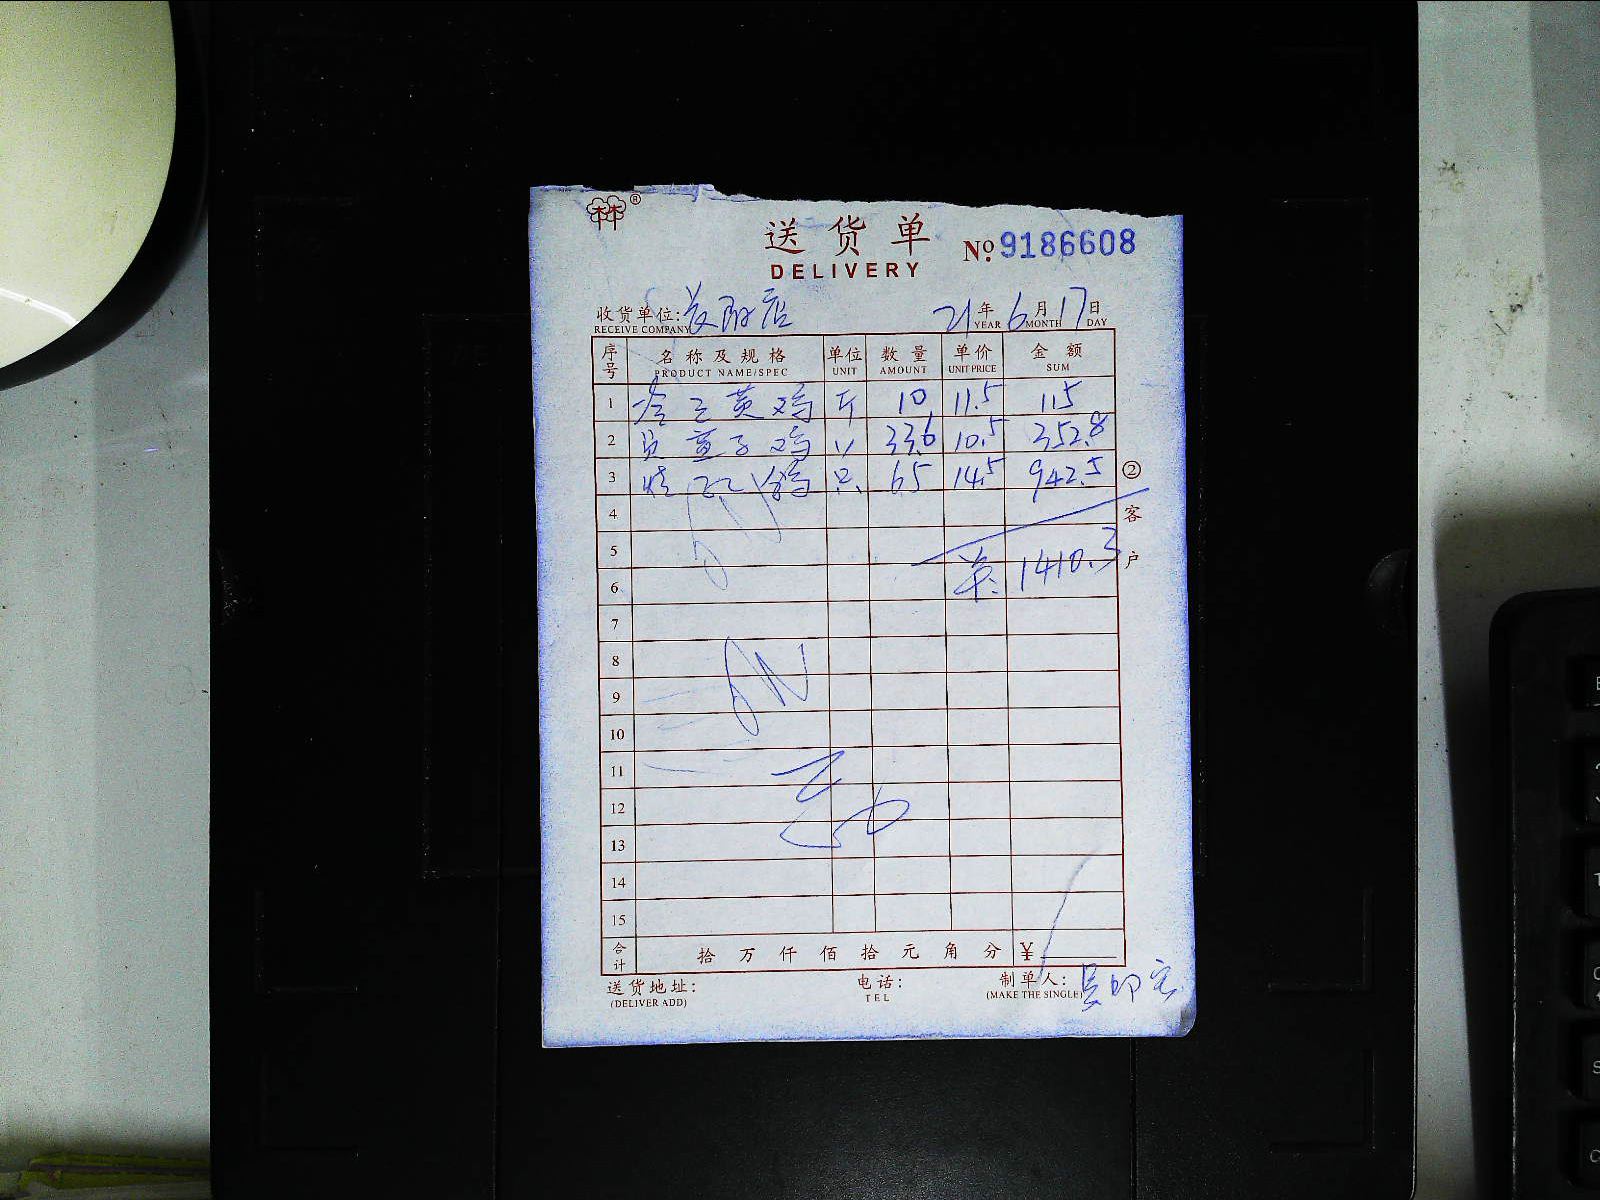 林®
送货单
DELIVERY
№ 9186608
收货单位: 店
RECEIVE COMPANY
21年 6月 17日
YEAR MONTH DAY
序号 名称及规格 单位 数量 单价 金额
PRODUCT NAME/SPEC UNIT AMOUNT UNIT PRICE SUM
1 冷三黄鸡 斤 10 11.5 115
2 童子鸡 〃 33.6 10.5 352.8
3 烧 鸽 只 65 14.5 942.5
4
5
6 共: 1410.3
7
8
9
10
11
12
13
14
15
② 客户
合计 拾 万 仟 佰 拾 元 角 分 ¥
送货地址: 电话: 制单人: 吴
(DELIVER ADD) TEL (MAKE THE SINGLE)